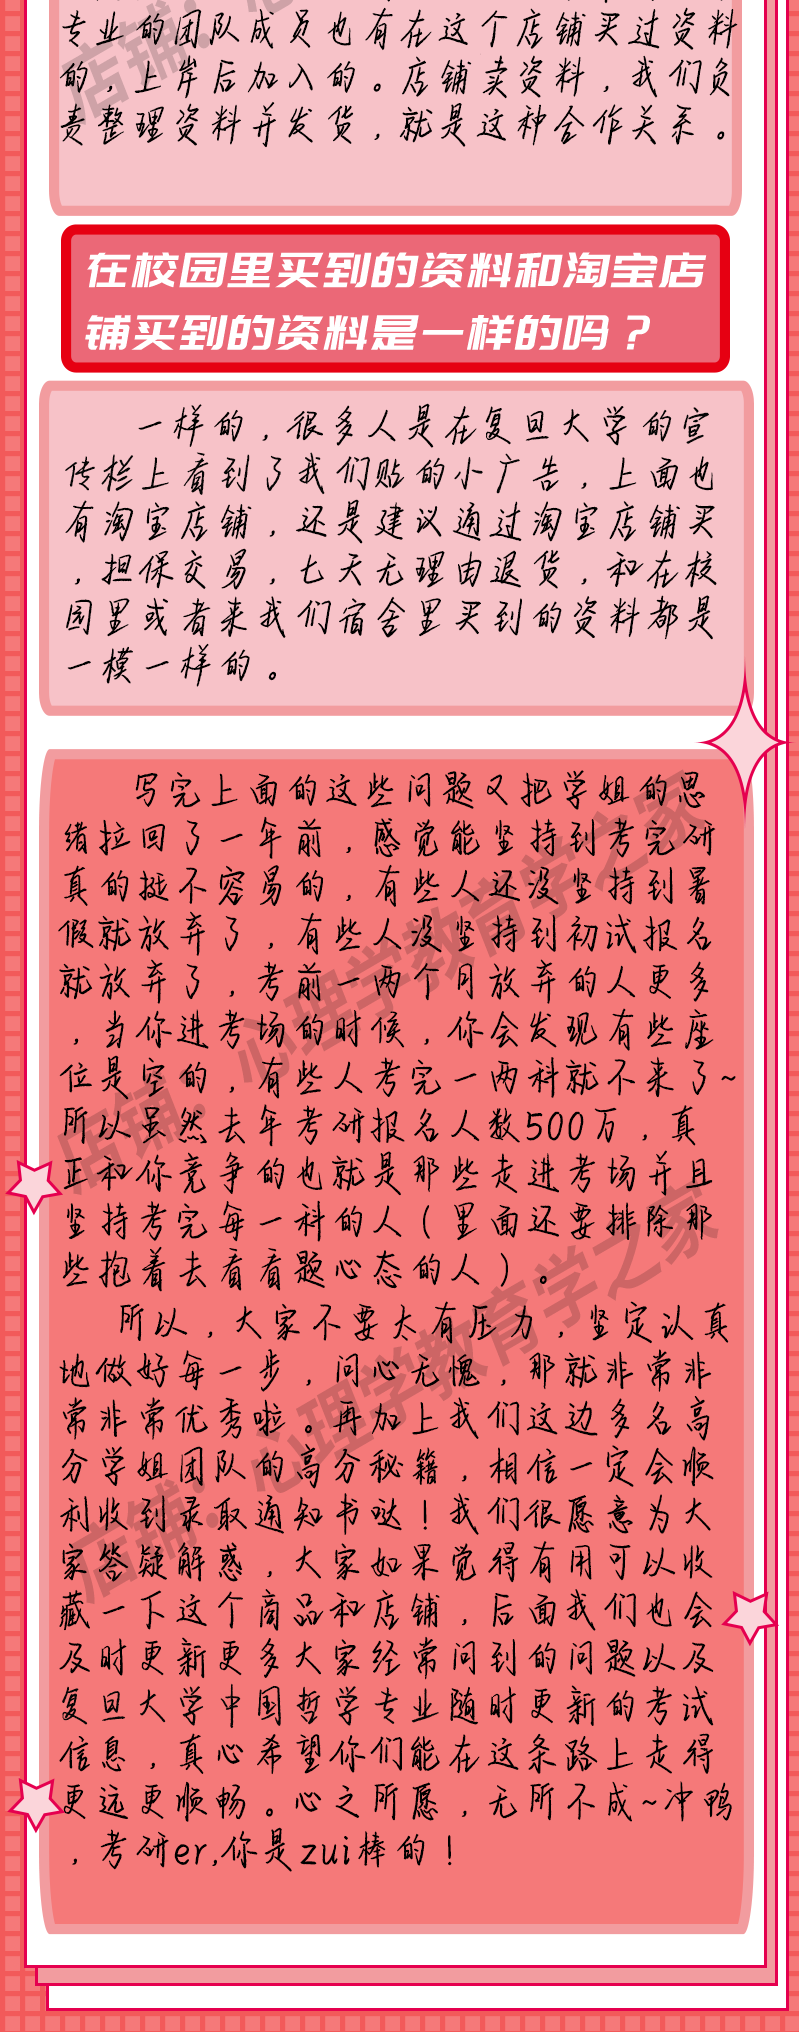 专业的团队成员也有在这个店铺买过资料
的，上岸后加入的。店铺卖资料，我们负
责整理资料并发货，就是这种合作关系。
在校园里买到的资料和淘宝店
铺买到的资料是一样的吗？
一样的，很多人是在复旦大学的宣
传栏上看到了我们贴的小广告，上面也
有淘宝店铺，还是建议通过淘宝店铺买
，担保交易，七天无理由退货，和在校
园里或者来我们宿舍里买到的资料都是
一模一样的。
写完上面的这些问题又把学姐的思
绪拉回了一年前，感觉能坚持到考完研
真的挺不容易的，有些人还没坚持到暑
假就放弃了，有些人没坚持到初试报名
就放弃了，考前一两个月放弃的人更多
，当你进考场的时候，你会发现有些座
位是空的，有些人考完一两科就不来了~
所以虽然去年考研报名人数500万，真
正和你竞争的也就是那些走进考场并且
坚持考完每一科的人（里面还要排除那
些抱着去看看题心态的人）。
所以，大家不要太有压力，坚定认真
地做好每一步，问心无愧，那就非常非
常非常优秀啦。再加上我们这边多名高
分学姐团队的高分秘籍，相信一定会顺
利收到录取通知书哒！我们很愿意为大
家答疑解惑，大家如果觉得有用可以收
藏一下这个商品和店铺，后面我们也会
及时更新更多大家经常问到的问题以及
复旦大学中国哲学专业随时更新的考试
信息，真心希望你们能在这条路上走得
更远更顺畅。心之所愿，无所不成~冲鸭
，考研er,你是zui棒的！
店铺：心理学教育学之家
店铺：心理学教育学之家